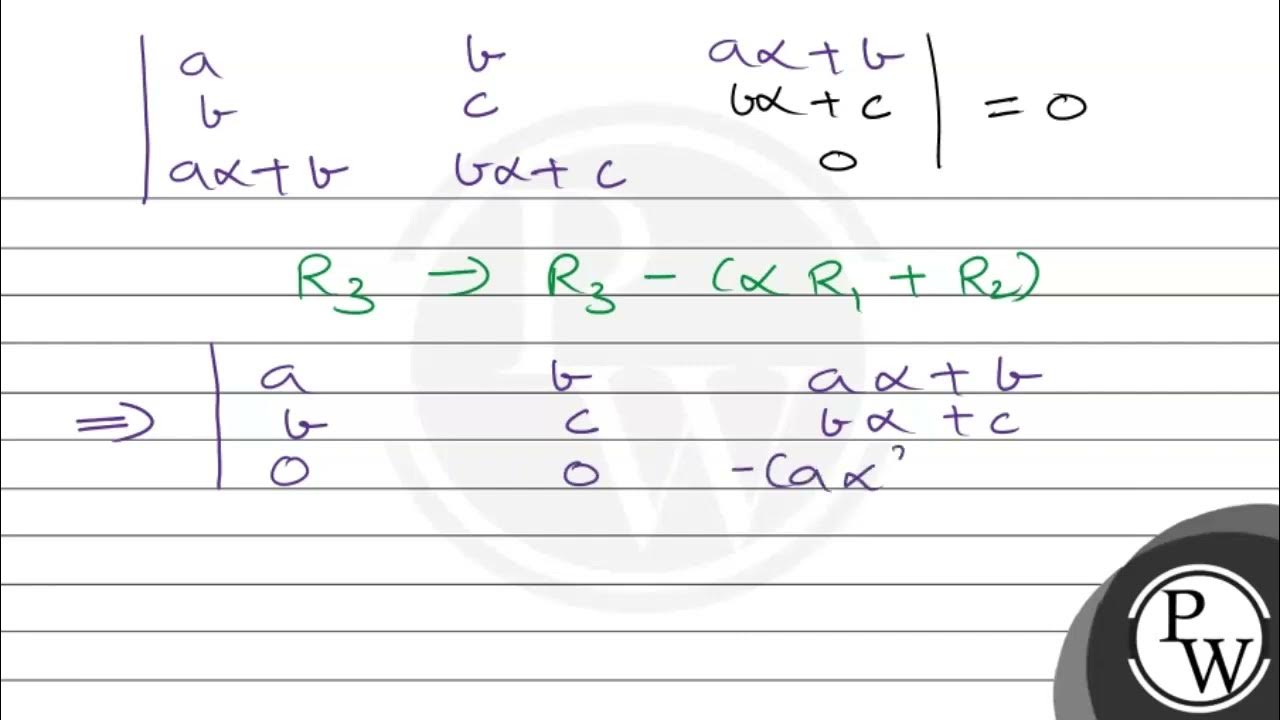 | a b aα + b |
| b c bα + c | = 0
| aα + b bα + c 0 |
R₃ → R₃ − (α R₁ + R₂)
| a b aα + b
⇒ | b c bα + c
| 0 0 −(aα²
PW
PW